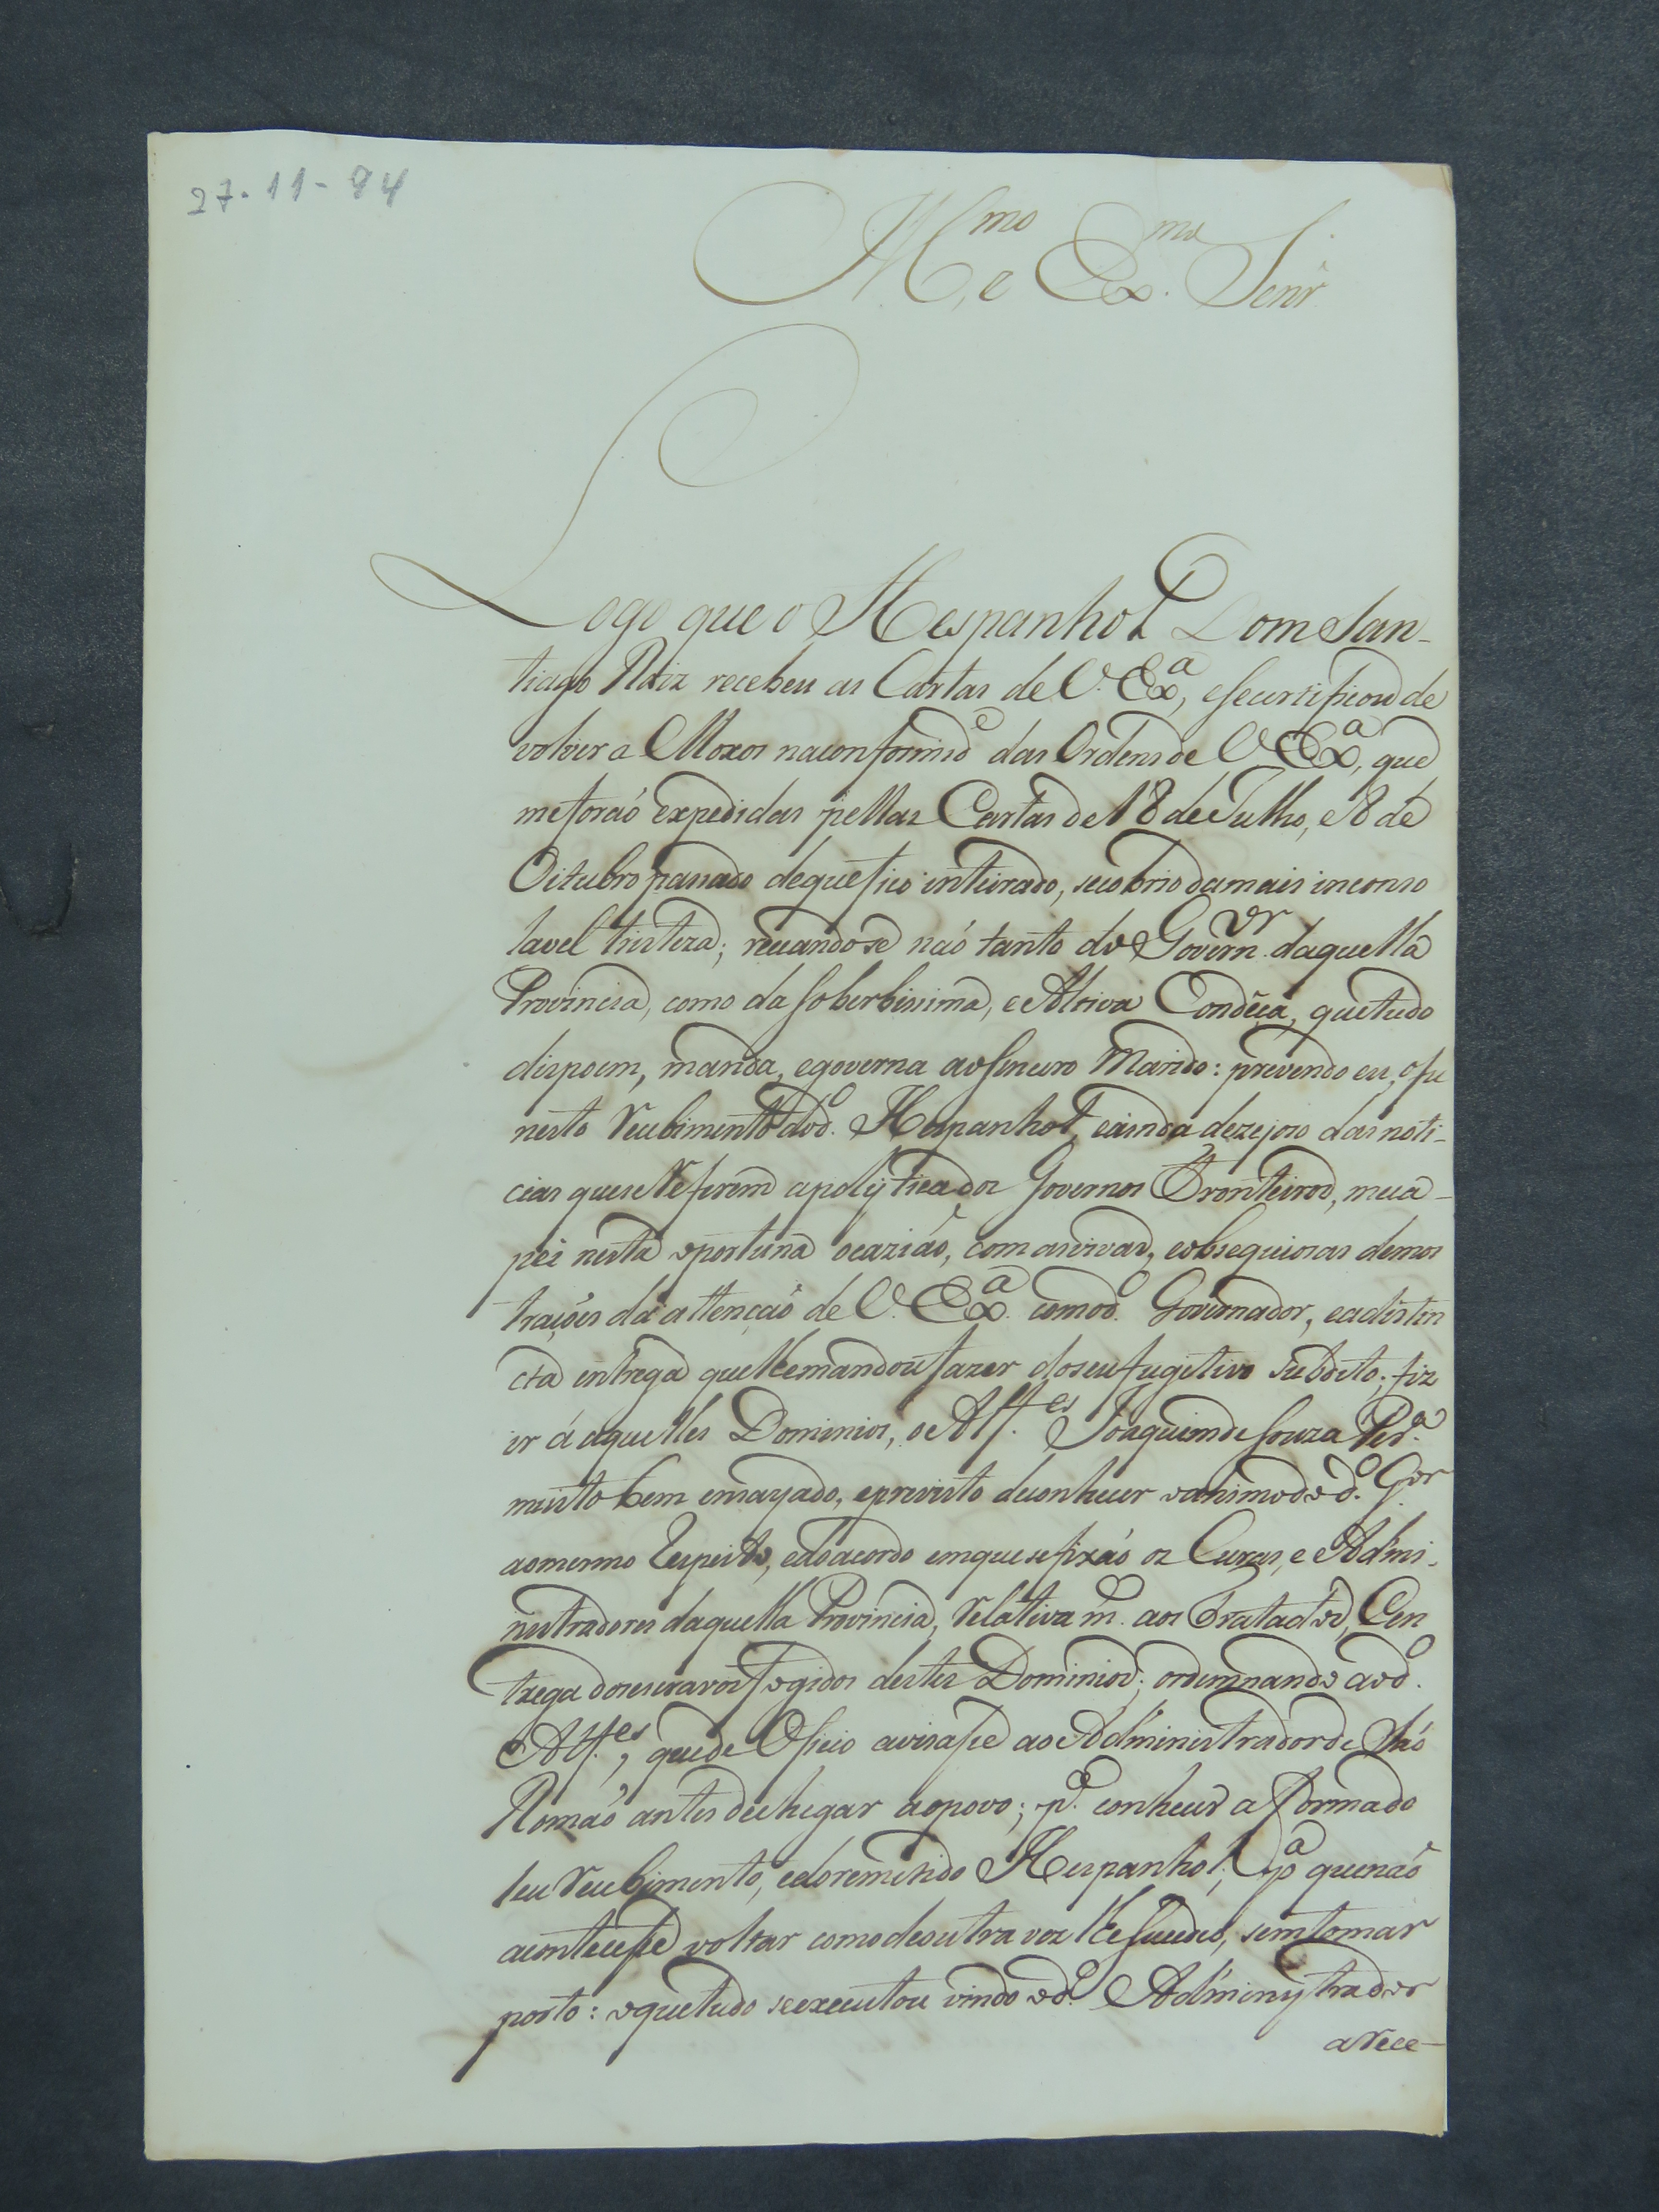 27-11-94
Ill.mo, e Ex.mo Senr.
Logo que o Hespanhol Dom San-
tiago Roiz recebeu as Cartas de V. Ex.a, e se certificou de
volver a Moxos na conformid.e das Ordens de V. Ex.a, que
me foraó expedidas pellas Cartas de 18 de Julho, e 8 de
Oitubro passado de que fico inteirado, se cobrio da mais inconso
lavel tristeza; receandose naó tanto do Govern.or daquella
Provincia, como da soberbissima, e Altiva Condeça, que tudo
dispoem, manda, e governa ao sincero Marido: prevendo eu, o fu
nesto recebimento do d.o Hespanhol, e ainda dezejozo das noti-
cias que se referem a polytica dos Governos Fronteiros, me ca-
pei nesta oportuna ocaziaó, com as vivas, e obsequiosas demos
traçoes da attençaó de V. Ex.a com o d.o Governador, e a distin
cta entrega que lhe mandou fazer do seu fugitivo Subdito; fiz
ir á aquelles Dominios, o Alf.es Joaquim de Souza Per.a
muito bem ensayado, e previsto de conhecer o animo do d.o G.or
ao mesmo Respeito, e do acordo em que se fixaó os Curas, e Admi-
nistradores daquella Provincia, relativam.e aos Tratados, e en
trega dos escravos fogidos destes Dominios; ordemnando ao d.o
Alf.es, que de Oficio avisasse ao Administrador de Saó
Romaó antes de chegar ao povo; p.a conhecer a forma do
seu recebimento, e do remetido Hespanhol; e p.a que naó
acontecesse voltar como de outra vez lhe sucedeo, sem tomar
porto: o que tudo se executou vindo o d.o Adminystrador
a rece-